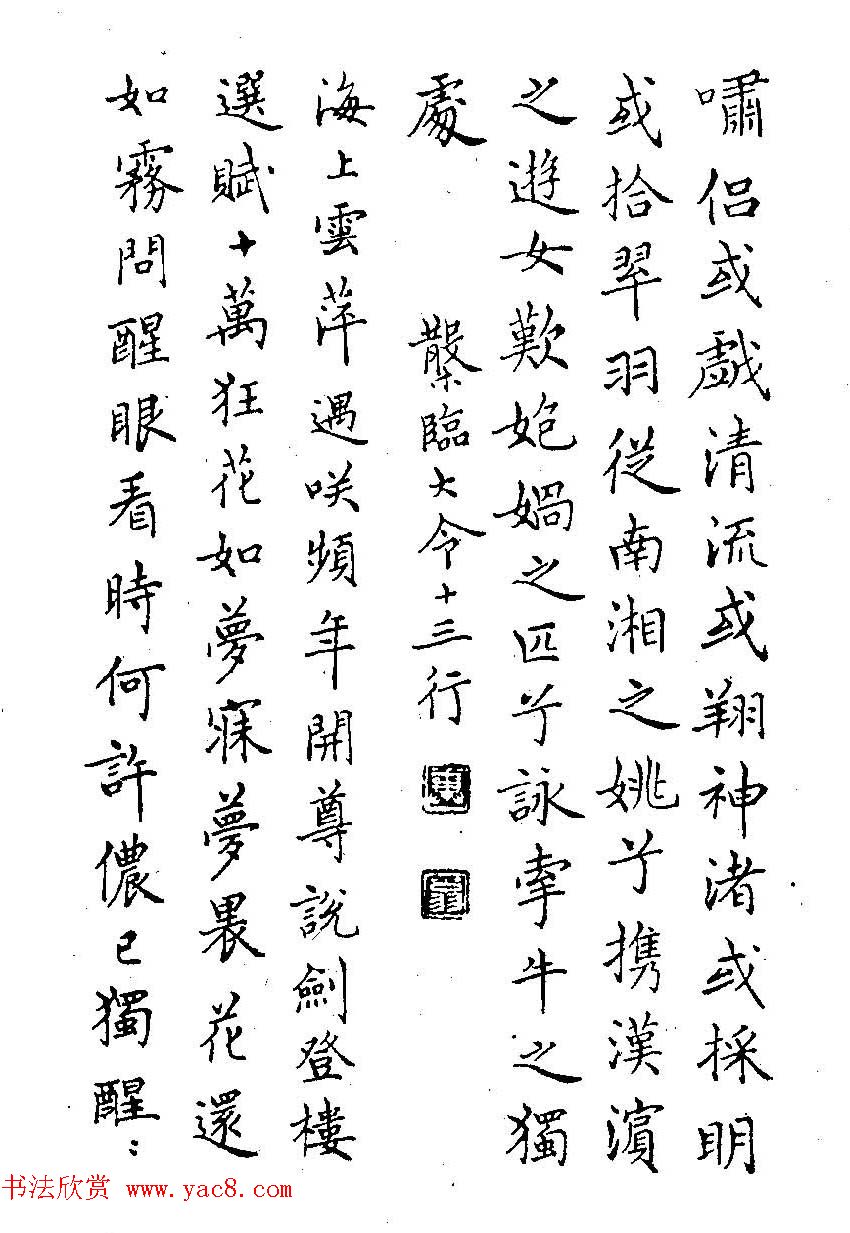 嘯侶或戲清流或翔神渚或採明
或拾翠羽從南湘之姚兮攜漢濱
之遊女歎㚿媧之匹兮詠牽牛之獨
處
臨大令十三行
海上雲萍遇咲頻年開尊說劍登樓
選賦十萬狂花如夢寐夢裏花還
如霧問醒眼看時何許儂已獨醒:
书法欣赏 www.yac8.com